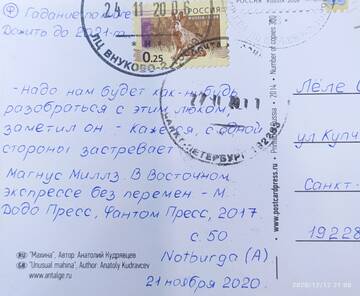 Гадание по книге
Дожить до 2021-го
24 11 20 06
ПЦ ВНУКОВО-2
РОССИЯ
0.25
РОССИЯ
- надо нам будет как-нибудь
разобраться с этим люком,
заметил он - кажется, с одной
стороны застревает.
Магнус Миллз. В Восточном
экспрессе без перемен - М.:
Додо Пресс, Фантом Пресс, 2017.
с. 50
Notburga (A)
21 ноября 2020.
САНКТ-ПЕТЕРБУРГ
RU "Махина", Автор Анатолий Кудрявцев
GB "Unusual mahina", Author Anatoly Kudravcev
www.antalge.ru
www.postcardpress.ru
2014
Number of copies
Лёле С
ул Купч
Санкт-
19228
2020/12/12 21:08